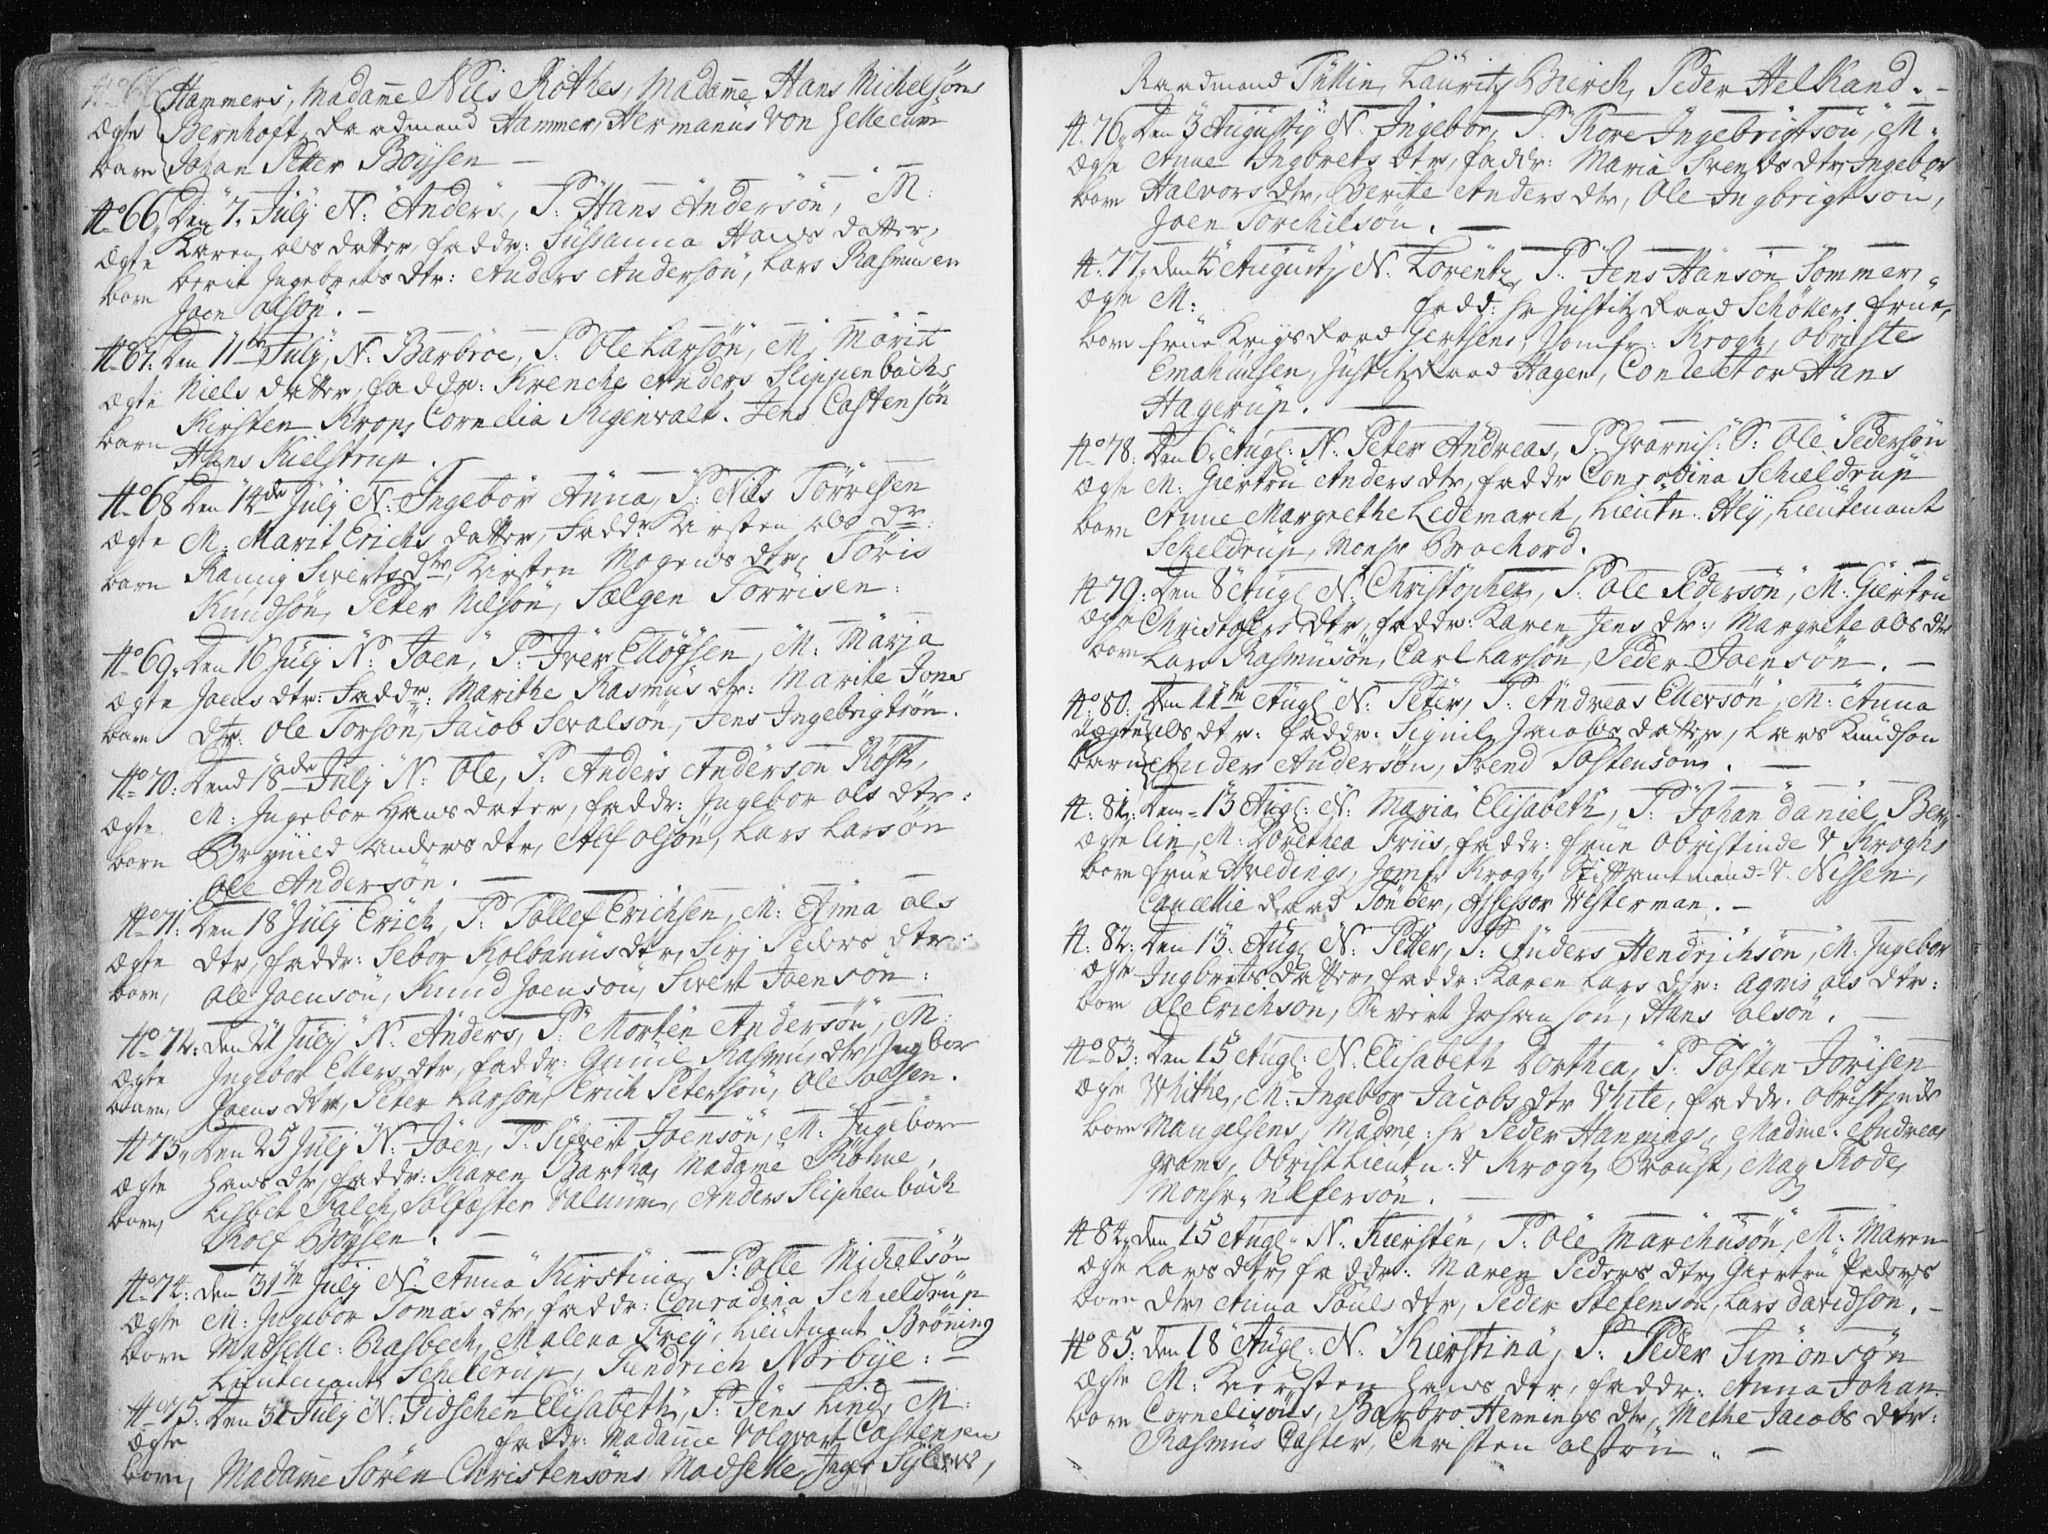 Hammers, Madame Niels Röthes, Madame Hans Michelsøns
Ægte Bernhoft, Raadmand Hammer, Hermanus Von
barn Johan Peter Böysen —
No 66. Den 7. Julij N: Anders, P: Hans Andersøn, M:
Ægte Karen ols datter, faddr: Sussanna Hans datter,
barn berit Ingebrets dtr: Anders Andersøn, Lars Rasmusen
Joen olsøn. —
No 67: Den 11te Julij, N: Barbroe, P: Ole Larsøn, M: Marit
Ægte Niels datter, faddr: Anders Slippenbachs
barn Kirsten Krop, Cornelia Riginvalt. Jens Castensøn
Hans Kielstrup.
No 68 Den 14de Julij N: Ingebor Anna, P: Nils Törresen
Ægte M: Marit Erichs datter, Faddr: Kirsten ols dr:
barn Rannig Siverts dtr, Kirsten Mogens dtr, Töris
Knudsøn, Peter Nilsøn, Törrisen:
No 69: Den 16 Julij N: Joen, P: Iver Ellofsen, M: Marja
Ægte Joens dtr: Faddr: Marithe Rasmus dtr: Marite Jons
barn dtr: Ole Torsøn, Jacob Sivalsøn, Jens Ingebrigtsøn.
No 70: Dend 18de Julij N: Ole, P: Anders Andersøn Röst,
Ægte M: Ingebor Hans dater, faddr: Ingebor ols dtr:
barn Brynild Anders dtr, Alf olsøn, Lars Larsøn
Ole Andersøn. —
No 71: Den 18 Julij Erich, P: Tollef Erichsen, M: Anna ols
Ægte dtr, faddr: Sebor Kolbanus dtr, Sirj Peders dtr:
barn, ole Joensøn, Knud Joensøn, Sivert Joensøn:
No 72: Den 21 Julij N: Anders, P: Morten Andersøn, M:
Ægte Ingebor Ellers dtr, faddr: Gunil Rasmus dtr, Ingbor
barn, Joens dtr, Peter Larsøn, Erich Petersøn, Ole
No 73. Den 25 Julij N: Joen, P: Sivert Joensøn, M: Ingebor
Ægte Hans dtr, faddr: Karen Bartha, Madame Röhne,
barn, Lisbet Falch, Anders Sliphenbach
Rolf Böysen. —
No 74: den 31te Julij N: Anna Kirstina, P: Olle Michelsøn
Ægte M: Ingebor Tomas dtr, faddr: Conradina Schieldrup
barn Madselle: Rasbech, Malena Frey, Lieutenant Bröning
Lieutenant Schelerup, Fendrich Norbye: —
No 75. Den 31 Julij N: Gidschen Elisabeth, P: Jens Lind, M:
Ægte faddr: Madame Volqvart Castensens
barn, Madame Sören Christensøns Madselle, Inger
Raadmand Tullin, Lauritz Bierch, Peder Helkand. —
No 76. Den 3 Augusty N: Ingebor, P: Tore Ingebrigtsøn, M:
Ægte Anne Ingbrets dtr, faddr: Maria Svends dtr, Ingebor
barn Halvors dtr, Berite Anders dtr, Ole Ingbrigtsøn,
Joen Torchilson. —
No 77. den 4 Augustj N: Lorentz, P: Jens Hansøn Sommer,
Ægte M: fadd: hr Justitz Raad Schöllers frue,
barn frue Krigs Raad Gertsens, Jomfr: Krogh, Obriste
Emahusen, Justitz Raad Hagen, Conrector Hans
Hagerup. —
No 78. Den 6. Augl: N: Peter Andreas, P: S: Ole Pedersøn
Ægte M: Giertru Anders dtr, faddr Conradina Schieldrup
barn Anne Margrethe Ledemarch, Lieutn: Hey, Lieutenant
Schieldrup, Monsr Brochord.
No 79: Den 8 Augl N: Christopher, P: Ole Pedersøn, M: Giertru
Ægte Christofers dtr, faddr: Karen Jens dtr:, Margrete ols dtr
barn Lars Rasmusøn, Carl Larsøn, Peder Joensøn. —
No 80: Den 11te Augl N: Peter, P: Andreas Ellersøn, M: Anna
Uægte ols dtr: faddr: Signil Jacobs datter, Lars Knudson
barn Andersøn, Svend Tostensøn. —
No 81: Den 13 Augl: N: Maria Elisabeth, P: Johan Daniel Ber,
Ægte lin, M: Dorethea Friis, faddr: frue Obristinde V Kroghs
barn frue Hvedings, Jomfr Krogh, Stiftamtmand V. Nissen,
Cancellie Raad Tönder, Assessor Vesterman. —
No 82: Den 13. Augl N: Petter, P: Anders Hendrichsøn, M: Ingebor
Ægte Ingbrets datter, faddr: Karen Lars dtr: Agnis ols dtr:
barn Ole Erichson, Sivert Johansøn, Hans olsøn. —
No 83: Den 15 Augl: N: Elisabeth Dorthea, P: Tosten Jörisen
Ægte Whithe, M: Ingebor Jacobs dtr White, faddr. Obristinde
barn Mangelsens, Madme: hr Peder Hannings, Madme: Andreas
Grams, Obrist Lieutn: V Krogh, Proust, Mag Rode,
Monsr: Ulfersøn. —
No 84: den 15 Augl: N: Kiersten, P: Ole Marchusøn, M: Maren
Ægte Lars dtr, faddr: Maren Peders dtr, Giertru Peders
barn dtr, Anna Pouls dtr, Peder Stefensøn, Lars Davidsøn. —
No 85. den 18 Augl: N: Kierstina, P: Peder Simonsøn
Ægte M: Kiersten Hans dtr, faddr: Anna Johan:
barn Cornelisøns, Barbro Hennings dtr, Methe Jacobs dtr:
Rasmus Caster, Christen olsøn. —